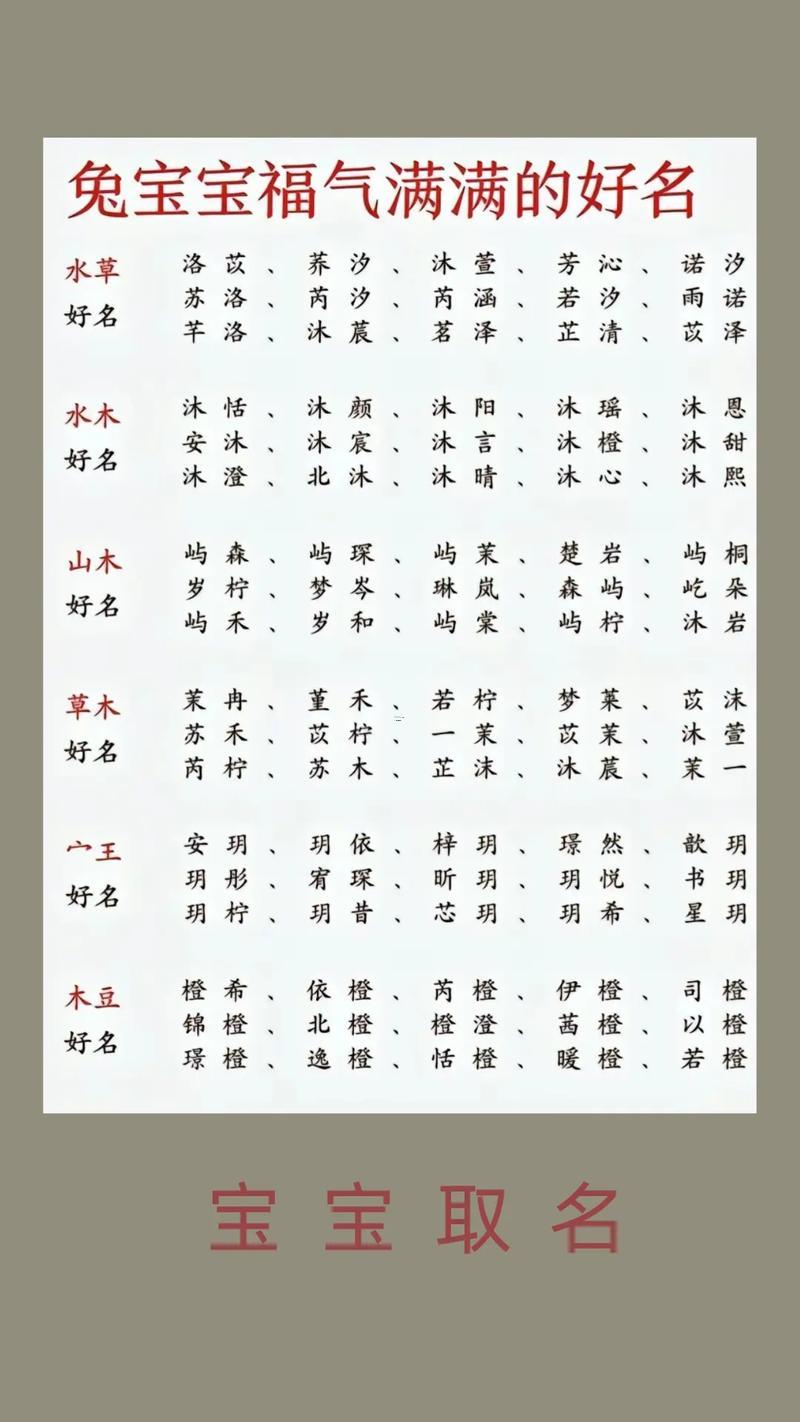 兔宝宝福气满满的好名
水草
好名
洛苡、荞汐、沐萱、芳沁、诺汐
苏洛、芮汐、芮涵、若汐、雨诺
芊洛、沐莀、茗泽、芷清、苡泽
水木
好名
沐恬、沐颜、沐阳、沐瑶、沐恩
安沐、沐宸、沐言、沐橙、沐甜
沐澄、北沐、沐晴、沐心、沐熙
山木
好名
屿森、屿琛、屿茉、楚岩、屿桐
岁柠、梦岑、琳岚、森屿、屹朵
屿禾、岁和、屿棠、屿柠、沐岩
草木
好名
茉冉、堇禾、若柠、梦莱、苡沫
苏禾、苡柠、一茉、苡茉、沐萱
芮柠、苏木、芷沫、沐莀、茉一
宀王
好名
安玥、玥依、梓玥、璟然、歆玥
玥彤、宥琛、昕玥、玥悦、书玥
玥柠、玥昔、芯玥、玥希、星玥
木豆
好名
橙希、依橙、芮橙、伊橙、司橙
锦橙、北橙、橙澄、茜橙、以橙
璟橙、逸橙、恬橙、暖橙、若橙
宝宝取名